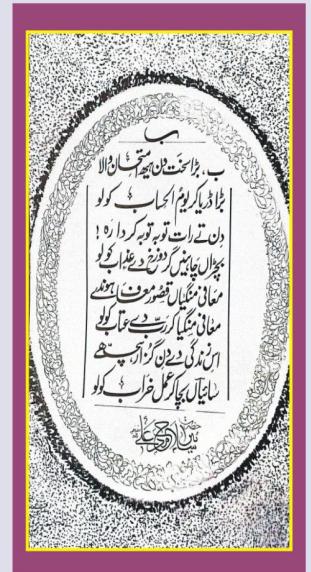 ب
ب، بڑا سخت دن ایھہ امتحان والا
بڑا ڈریا کر یوم الحساب کولو
دن تے رات توبہ توبہ کردا رہ !
بچڑاں چاہنیں گر دوزخ دے عذاب کولو
معافی منگیاں قصور معاف ہوندے
معافی منگیا کر رب دے عتاب کولو
اس زندگی دے دن گزار سچھے
سائیاں بچا کر عمل خراب کولو